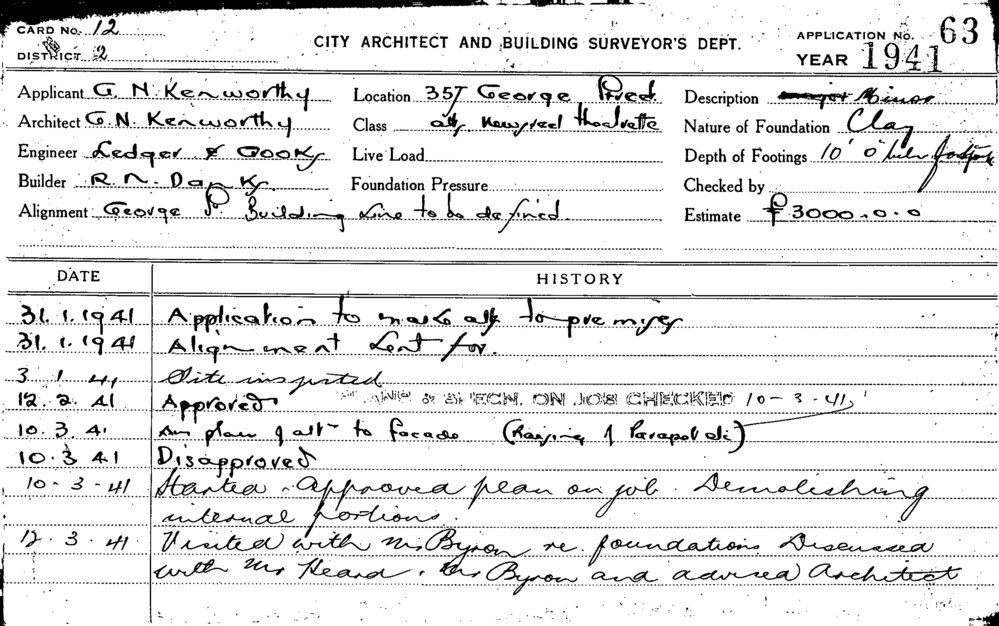 CARD NO. 12
DISTRICT 2
CITY ARCHITECT AND BUILDING SURVEYOR'S DEPT.
APPLICATION NO. 63
YEAR 1941
Applicant G. N. Kenworthy
Location 357 George Street
Description Minor
Architect G. N. Kenworthy
Class alts newsreel theatrette
Nature of Foundation Clay
Engineer Ledger &
Live Load
Depth of Footings 10' 0"
Builder R. N.
Foundation Pressure
Checked by
Alignment George St. Building Line to be defined.
Estimate £3000.0.0
DATE HISTORY
31.1.1941 Application to make alts to premises
31.1.1941 Alignment sent for.
3 1 41 Site inspected
12.2.41 Approved PLANS & SPECN. ON JOB CHECKED 10-3-41
10.3.41 Am plan of altns to facade (Raising of Parapet etc)
10.3.41 Disapproved
10-3-41 Started. Approved plan on job. Demolishing
internal portions.
12.3.41 Visited with Mr Byron re. foundations Discussed
with Mr Heard. Mr Byron and advised Architect